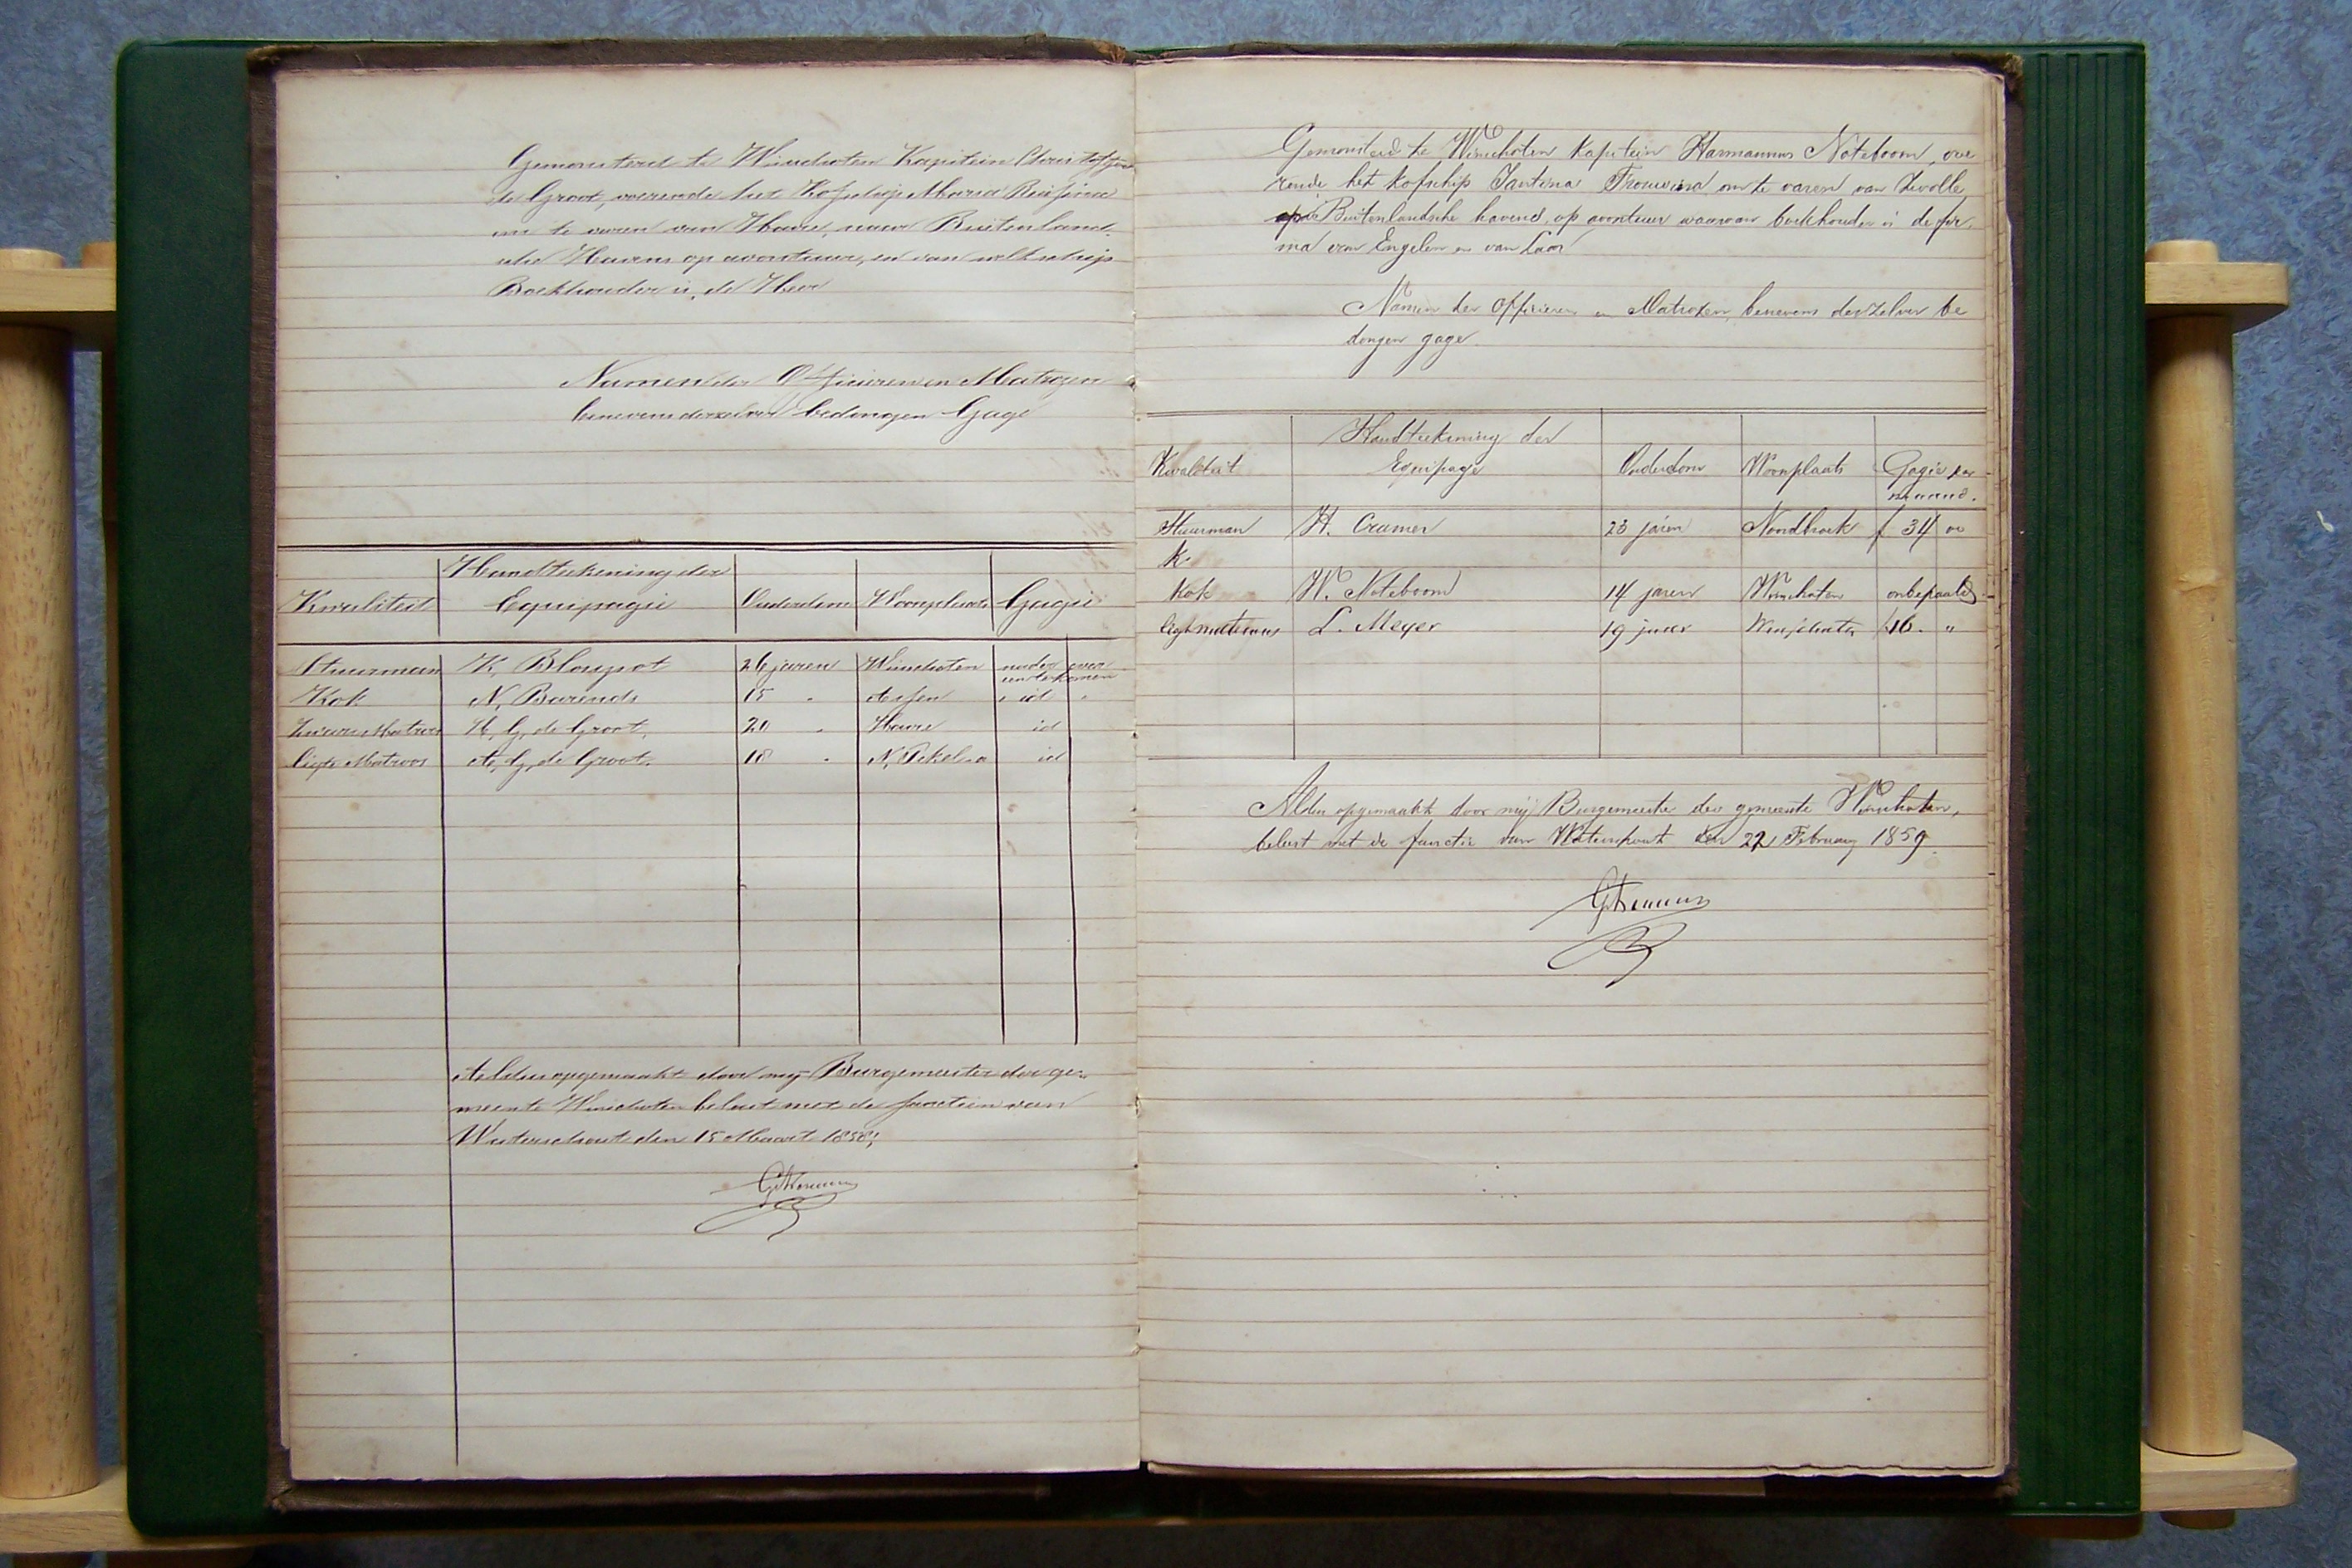 Gemonsterd te Winschoten Kapitein Christoffer
de Groot, voerende het Kofschip Maria
om te varen van Havre, naar Buitenland-
sche Havens op avontuur, en van welk schip
Boekhouder is, de Heer
Namen der Officieren en Matrozen
benevens derzelver bedongen Gage
Kwaliteit Handteekening der Equipagie Ouderdom Woonplaats Gagie
Stuurman K. Blaupot 26 jaren Winschoten nader over een te komen
Kok N. Barends 15 " Assen " id "
Matroos H. G. de Groot. 20 " Havre id
ligt Matroos A. G. de Groot. 18 " N. Pekela id
Aldus opgemaakt door mij Burgemeester der ge-
meente Winschoten belast met de functien van
Waterschout den 15 Maart 1858;
Gemonsterd te Winschoten Kapitein Harmannus Noteboom, voe
rende het kofschip Jantina Trouwina om te varen van Zwolle
Buitenlandsche havens, op avontuur waarvan boekhouder is de fir-
ma van Engelen en van Laar
Namen der Officieren en Matrozen, benevens derzelver be
dongen gage.
Kwaliteit Handteekening der Equipage Ouderdom Woonplaats Gagie per maand.
Stuurman H. Cramer 23 jaren Noordbroek f 34 00
K.
Kok W. Noteboom 14 jaren Winschoten onbepaald
ligtmatroos L. Meyer 19 jaar Winschoten f 16. "
Aldus opgemaakt door mij Burgemeester der gemeente Winschoten,
belast met de functie van Waterschout den 22 February 1859.